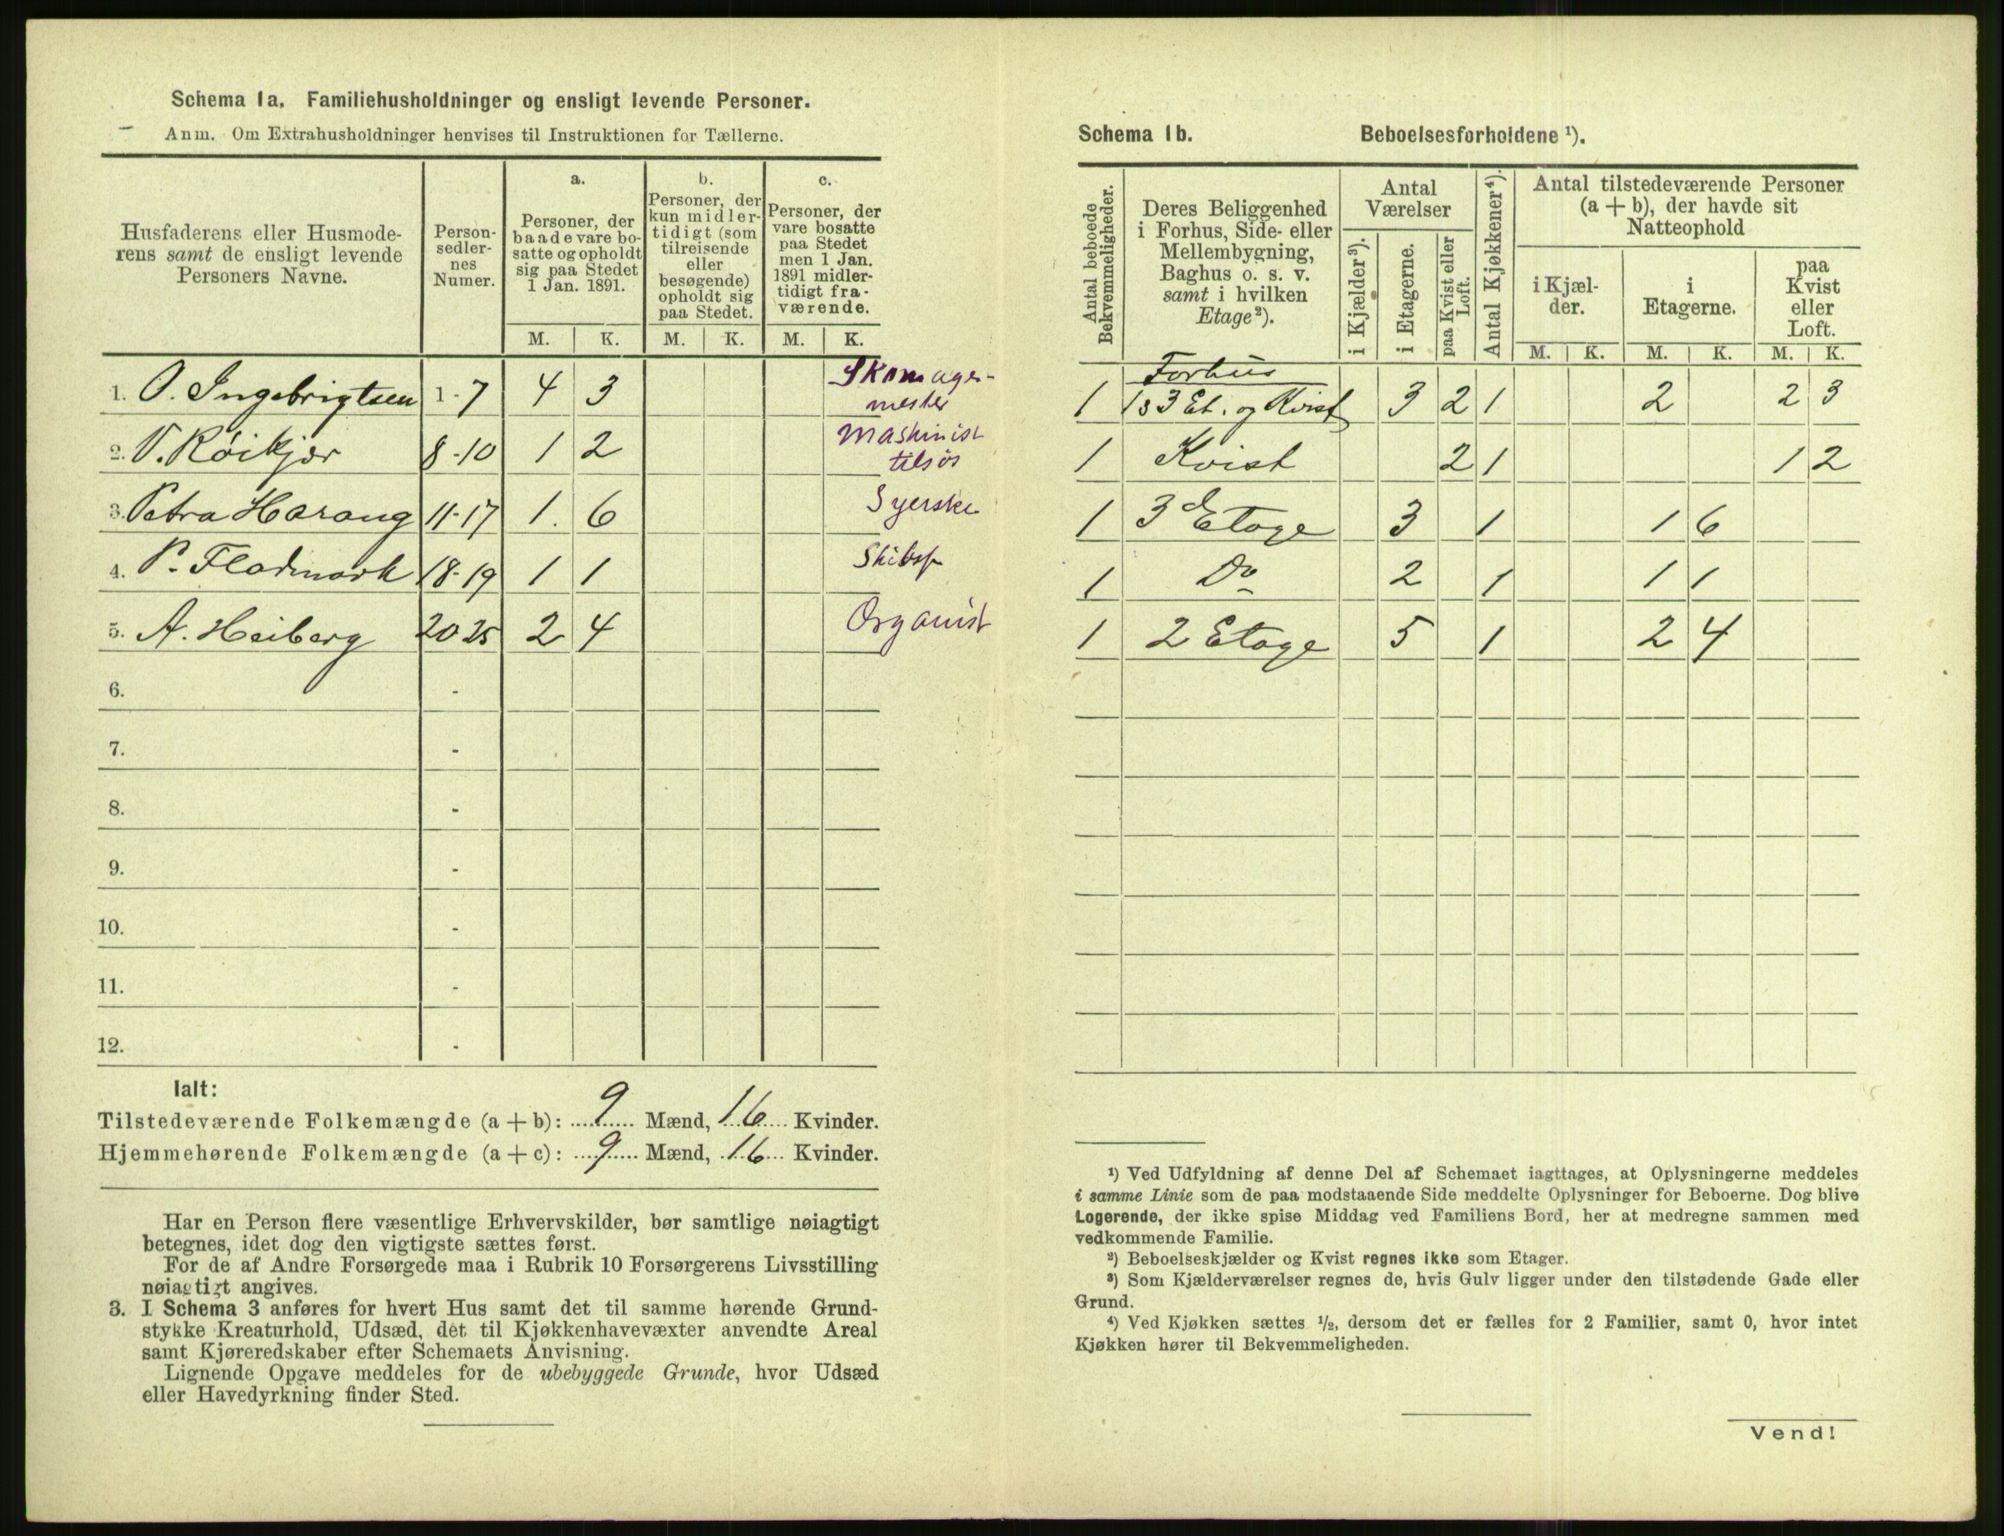 Schema 1a. Familiehusholdninger og ensligt levende Personer.
Anm. Om Extrahusholdninger henvises til Instruktionen for Tællerne.
Husfaderens eller Husmoderens samt de ensligt levende Personers Navne.
Person-sedler-nes Numer.
a. Personer, der baade vare bosatte og opholdt sig paa Stedet 1 Jan. 1891.
b. Personer, der kun midlertidigt (som tilreisende eller besøgende) opholdt sig paa Stedet.
c. Personer, der vare bosatte paa Stedet men 1 Jan. 1891 midlertidigt fraværende.
M. K. M. K. M. K.
1. O. Ingebrigtsen 1-7 4 3 Skomagermester
2. V. Röikjer 8-10 1 2 Maskinist tilsös
3. Petra Harang 11-17 1. 6 Syerske
4. P. Fladmark 18-19 1 1
5. A. Heiberg 20-25 2 4 Organist
6. -
7. -
8. -
9. -
10. -
11. -
12. -
Ialt:
Tilstedeværende Folkemængde (a+b): 9 Mænd, 16 Kvinder.
Hjemmehørende Folkemængde (a+c): 9 Mænd, 16 Kvinder.
Har en Person flere væsentlige Erhvervskilder, bør samtlige nøiagtigt
betegnes, idet dog den vigtigste sættes først.
For de af Andre Forsørgede maa i Rubrik 10 Forsørgerens Livsstilling
nøiagtigt angives.
3. I Schema 3 anføres for hvert Hus samt det til samme hørende Grund-
stykke Kreaturhold, Udsæd, det til Kjøkkenhavevæxter anvendte Areal
samt Kjøreredskaber efter Schemaets Anvisning.
Lignende Opgave meddeles for de ubebyggede Grunde, hvor Udsæd
eller Havedyrkning finder Sted.
Schema 1b. Beboelsesforholdene ¹).
Antal beboede Bekvemmeligheder.
Deres Beliggenhed i Forhus, Side- eller Mellembygning, Baghus o. s. v. samt i hvilken Etage²).
Antal Værelser
i Kjælder³). i Etagerne. paa Kvist eller Loft.
Antal Kjøkkener⁴).
Antal tilstedeværende Personer (a+b), der havde sit Natteophold
i Kjælder. i Etagerne. paa Kvist eller Loft.
M. K. M. K. M. K.
Forhus
1 1s 3 Et. og Kvist 3 2 1 2 2 3
1 Kvist 2 1 1 2
1 3 Etage 3 1 1 6
1 Do 2 1 1 1
1 2 Etage 5 1 2 4
¹) Ved Udfyldning af denne Del af Schemaet iagttages, at Oplysningerne meddeles
i samme Linie som de paa modstaaende Side meddelte Oplysninger for Beboerne. Dog blive
Logerende, der ikke spise Middag ved Familiens Bord, her at medregne sammen med
vedkommende Familie.
²) Beboelseskjælder og Kvist regnes ikke som Etager.
³) Som Kjælderværelser regnes de, hvis Gulv ligger under den tilstødende Gade eller
Grund.
⁴) Ved Kjøkken sættes ½, dersom det er fælles for 2 Familier, samt 0, hvor intet
Kjøkken hører til Bekvemmeligheden.
Vend!